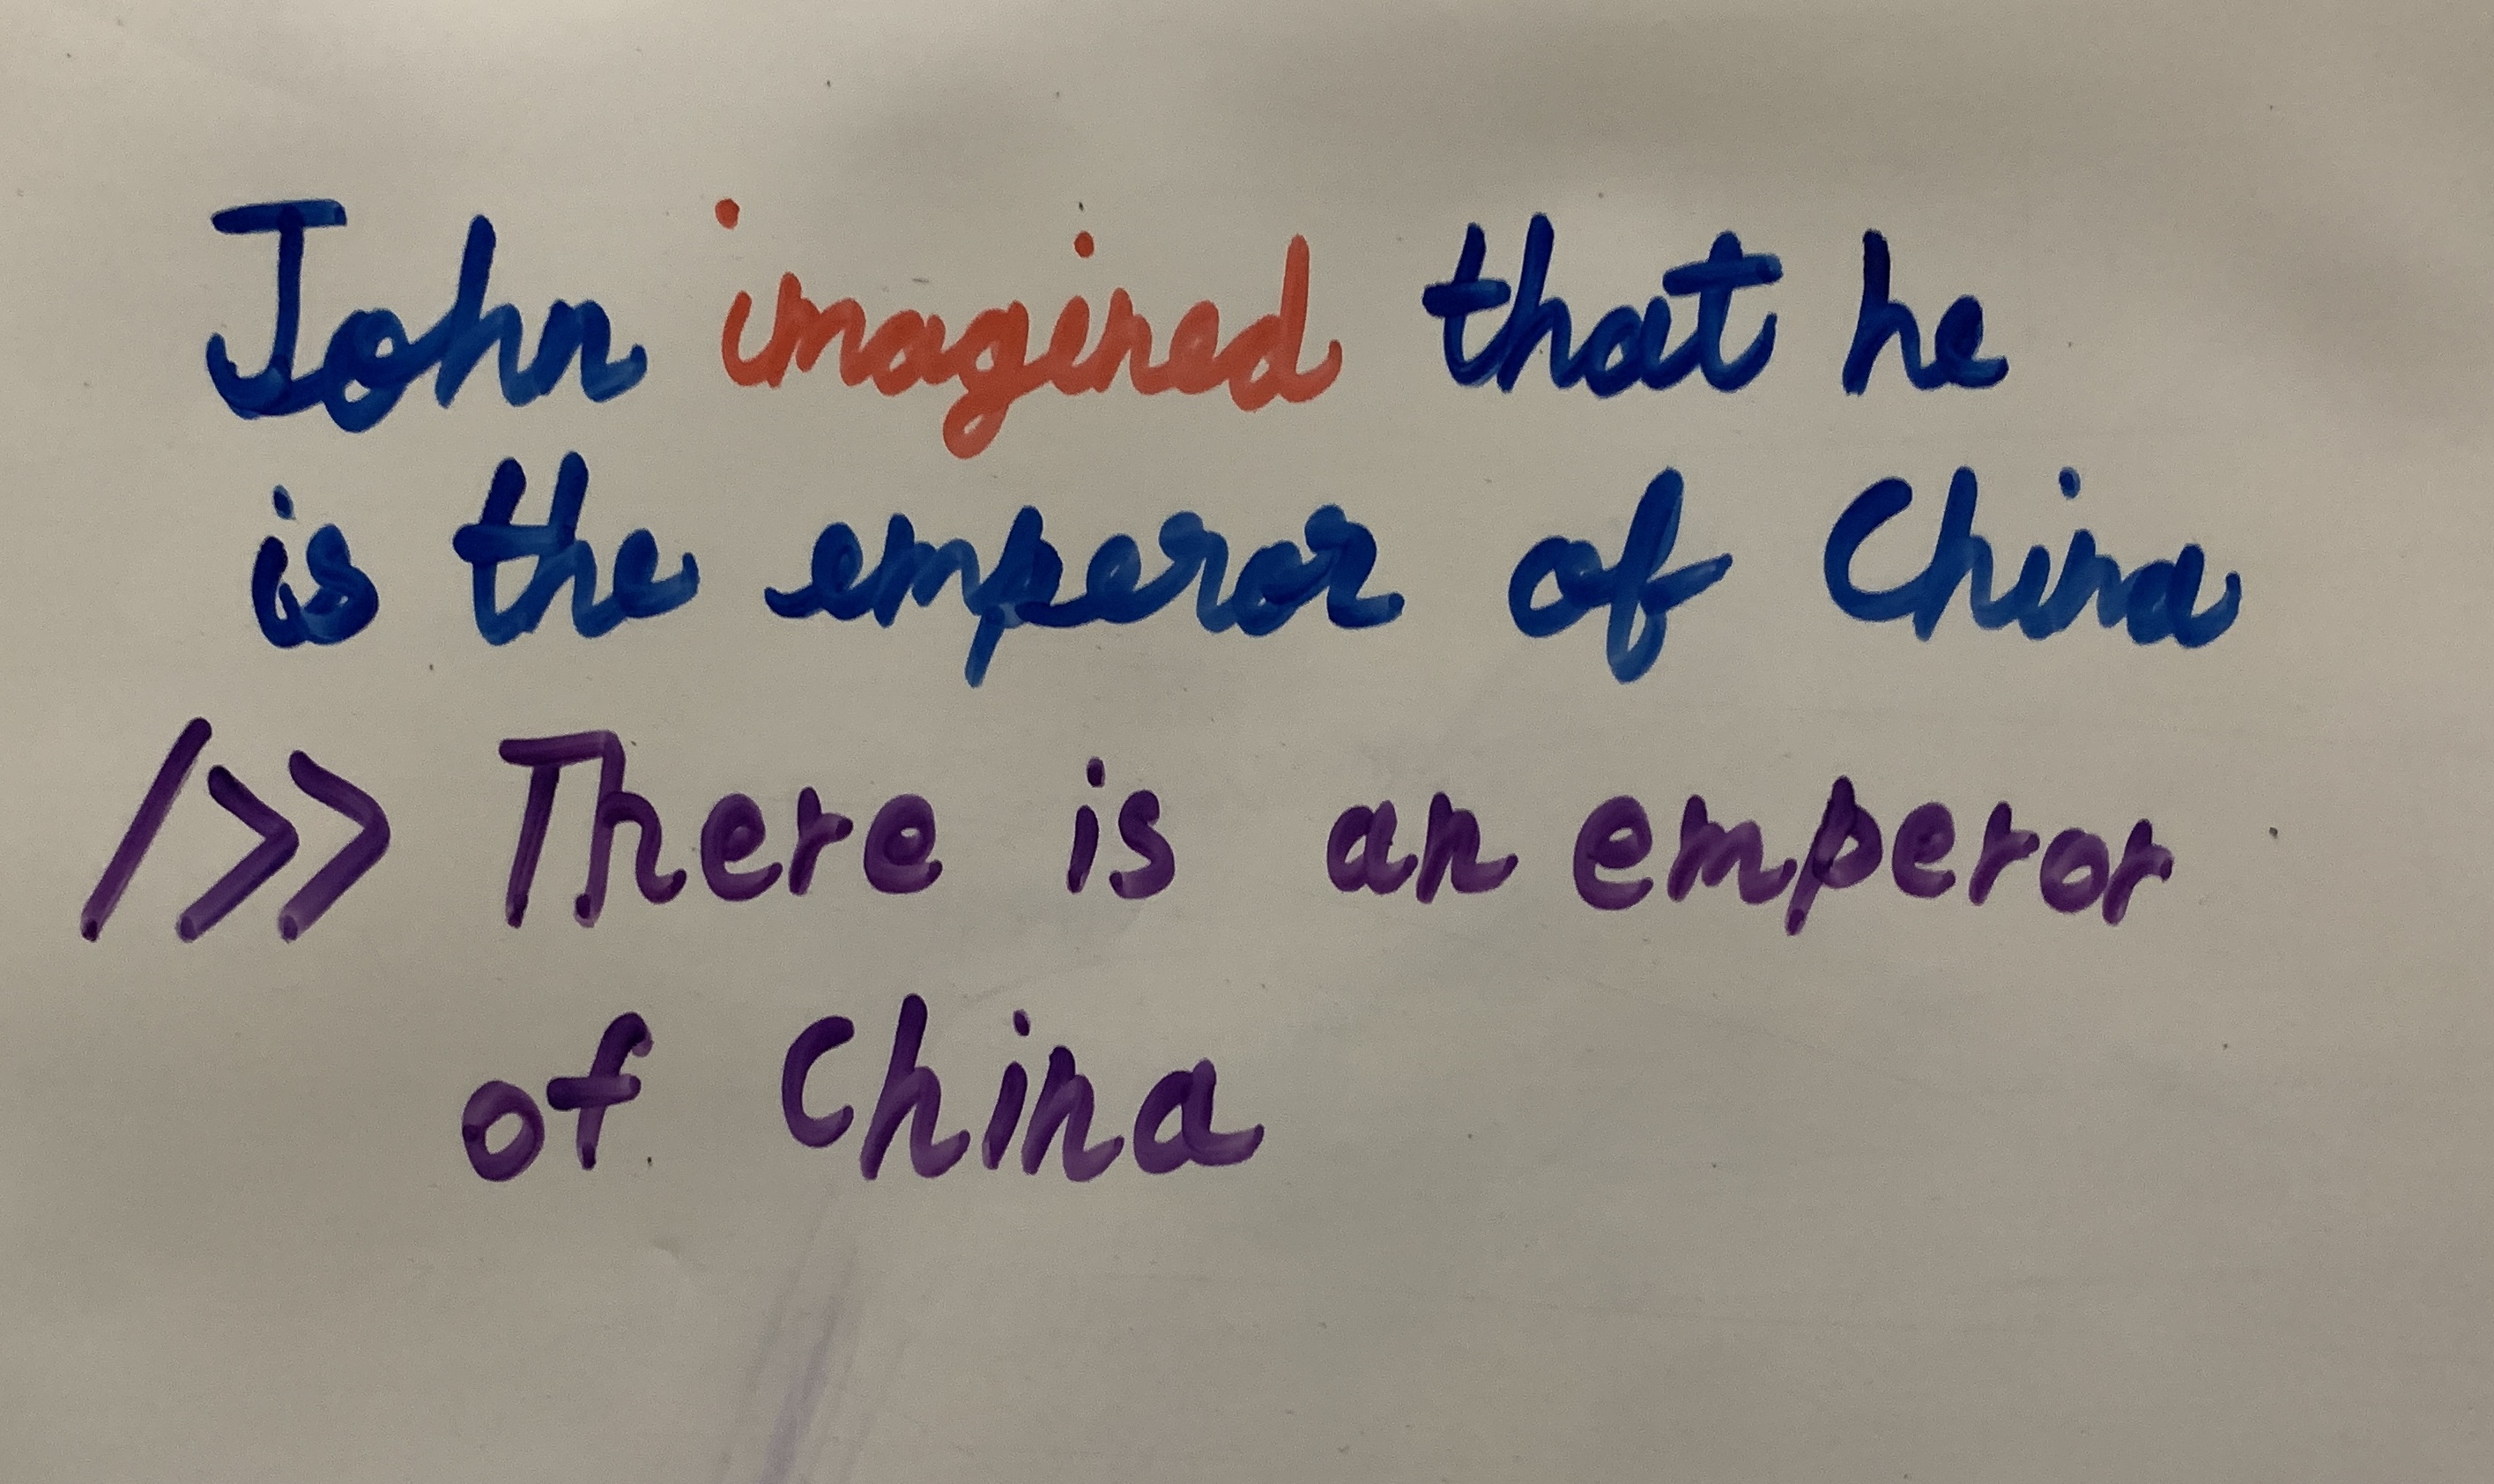 John imagined that he
is the emperor of China
/>> There is an emperor
of China